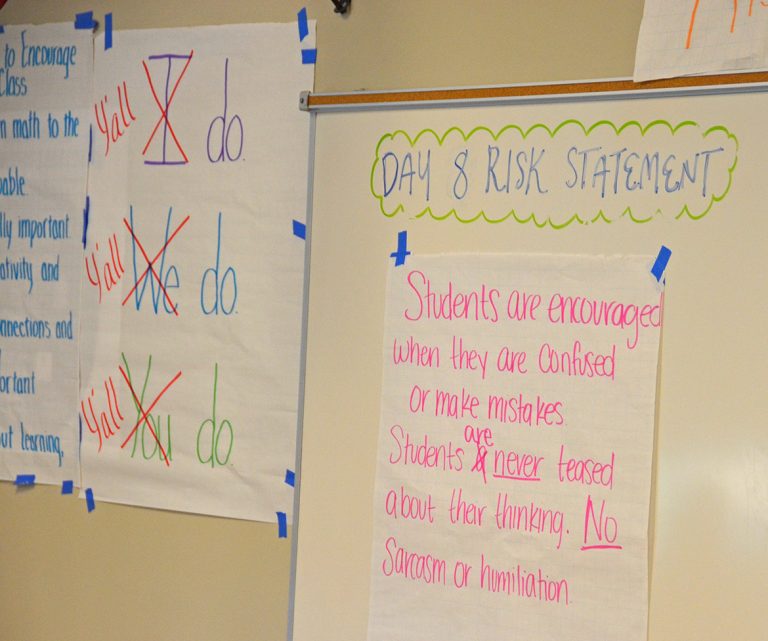 to Encourage
Class
n math to the
able
lly important
ativity and
nnections and
ortant
ut learning.
Y'all I do.
Y'all We do.
Y'all You do.
DAY 8 RISK STATEMENT
Students are encouraged
when they are confused
or make mistakes
Students are never teased
about their thinking. No
Sarcasm or humiliation.